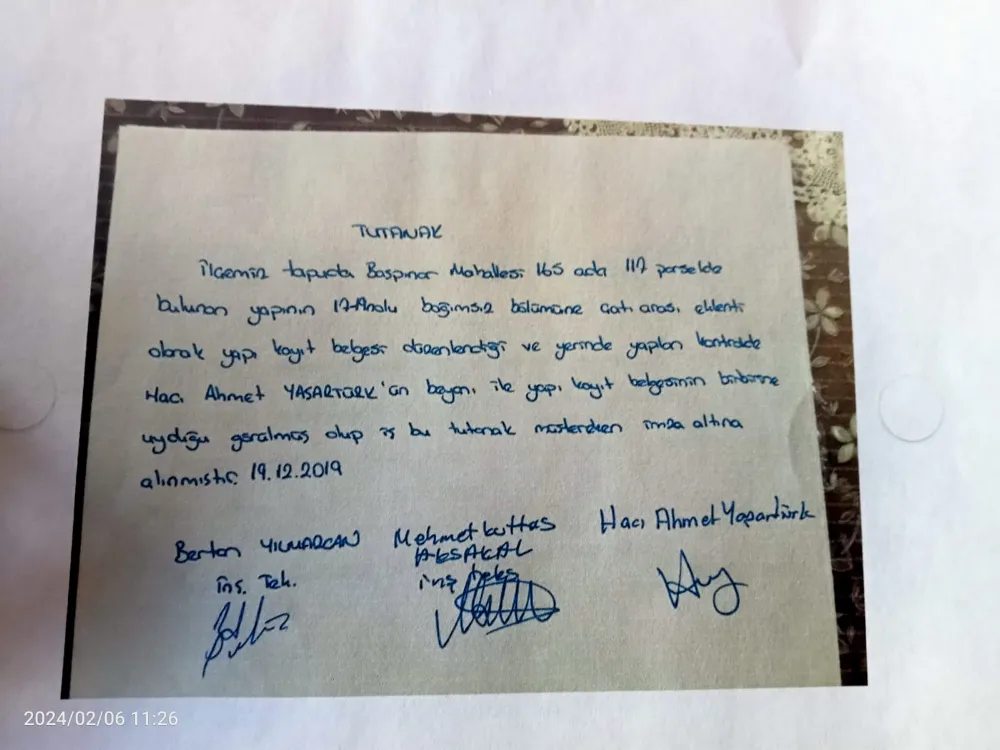 TUTANAK
İlçemiz tapuda Başpınar Mahallesi 165 ada 117 parselde
bulunan yapının 17 Nolu bağımsız bölümüne çatı arası eklenti
olarak yapı kayıt belgesi düzenlendiği ve yerinde yapılan kontrolde
Hacı Ahmet YAŞARTÜRK'ün beyanı ile yapı kayıt belgesinin birbirine
uyduğu görülmüş olup iş bu tutanak müştereken imza altına
alınmıştır. 19.12.2019
Hacı Ahmet Yaşartürk
Mehmet
Bertan YILMAZCAN
AKSAKAL
inş. Tek.
inş teks
2024/02/06 11:26